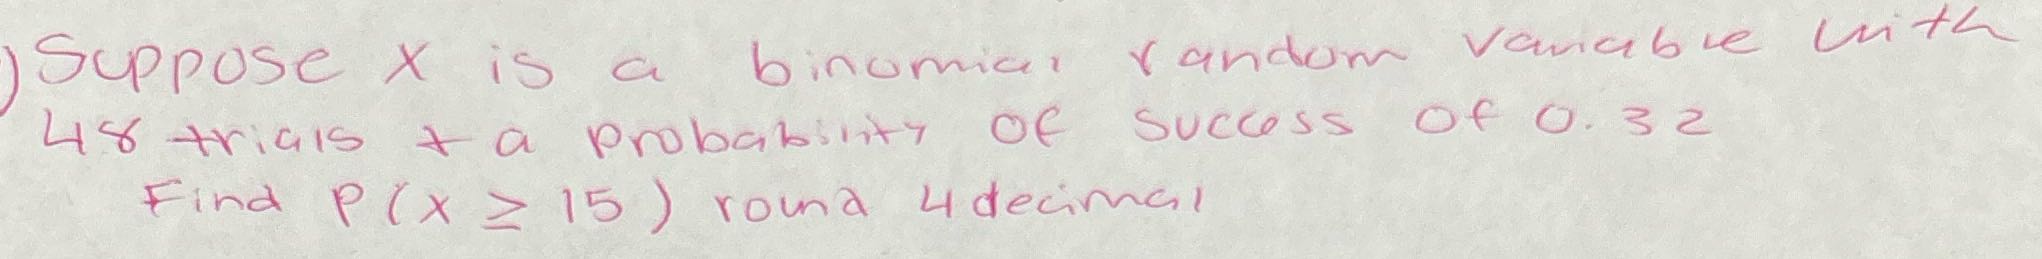 ) Suppose X is a binomial random variable with
48 trials + a probability of success of 0.32
Find P(X ≥ 15) round 4 decimal